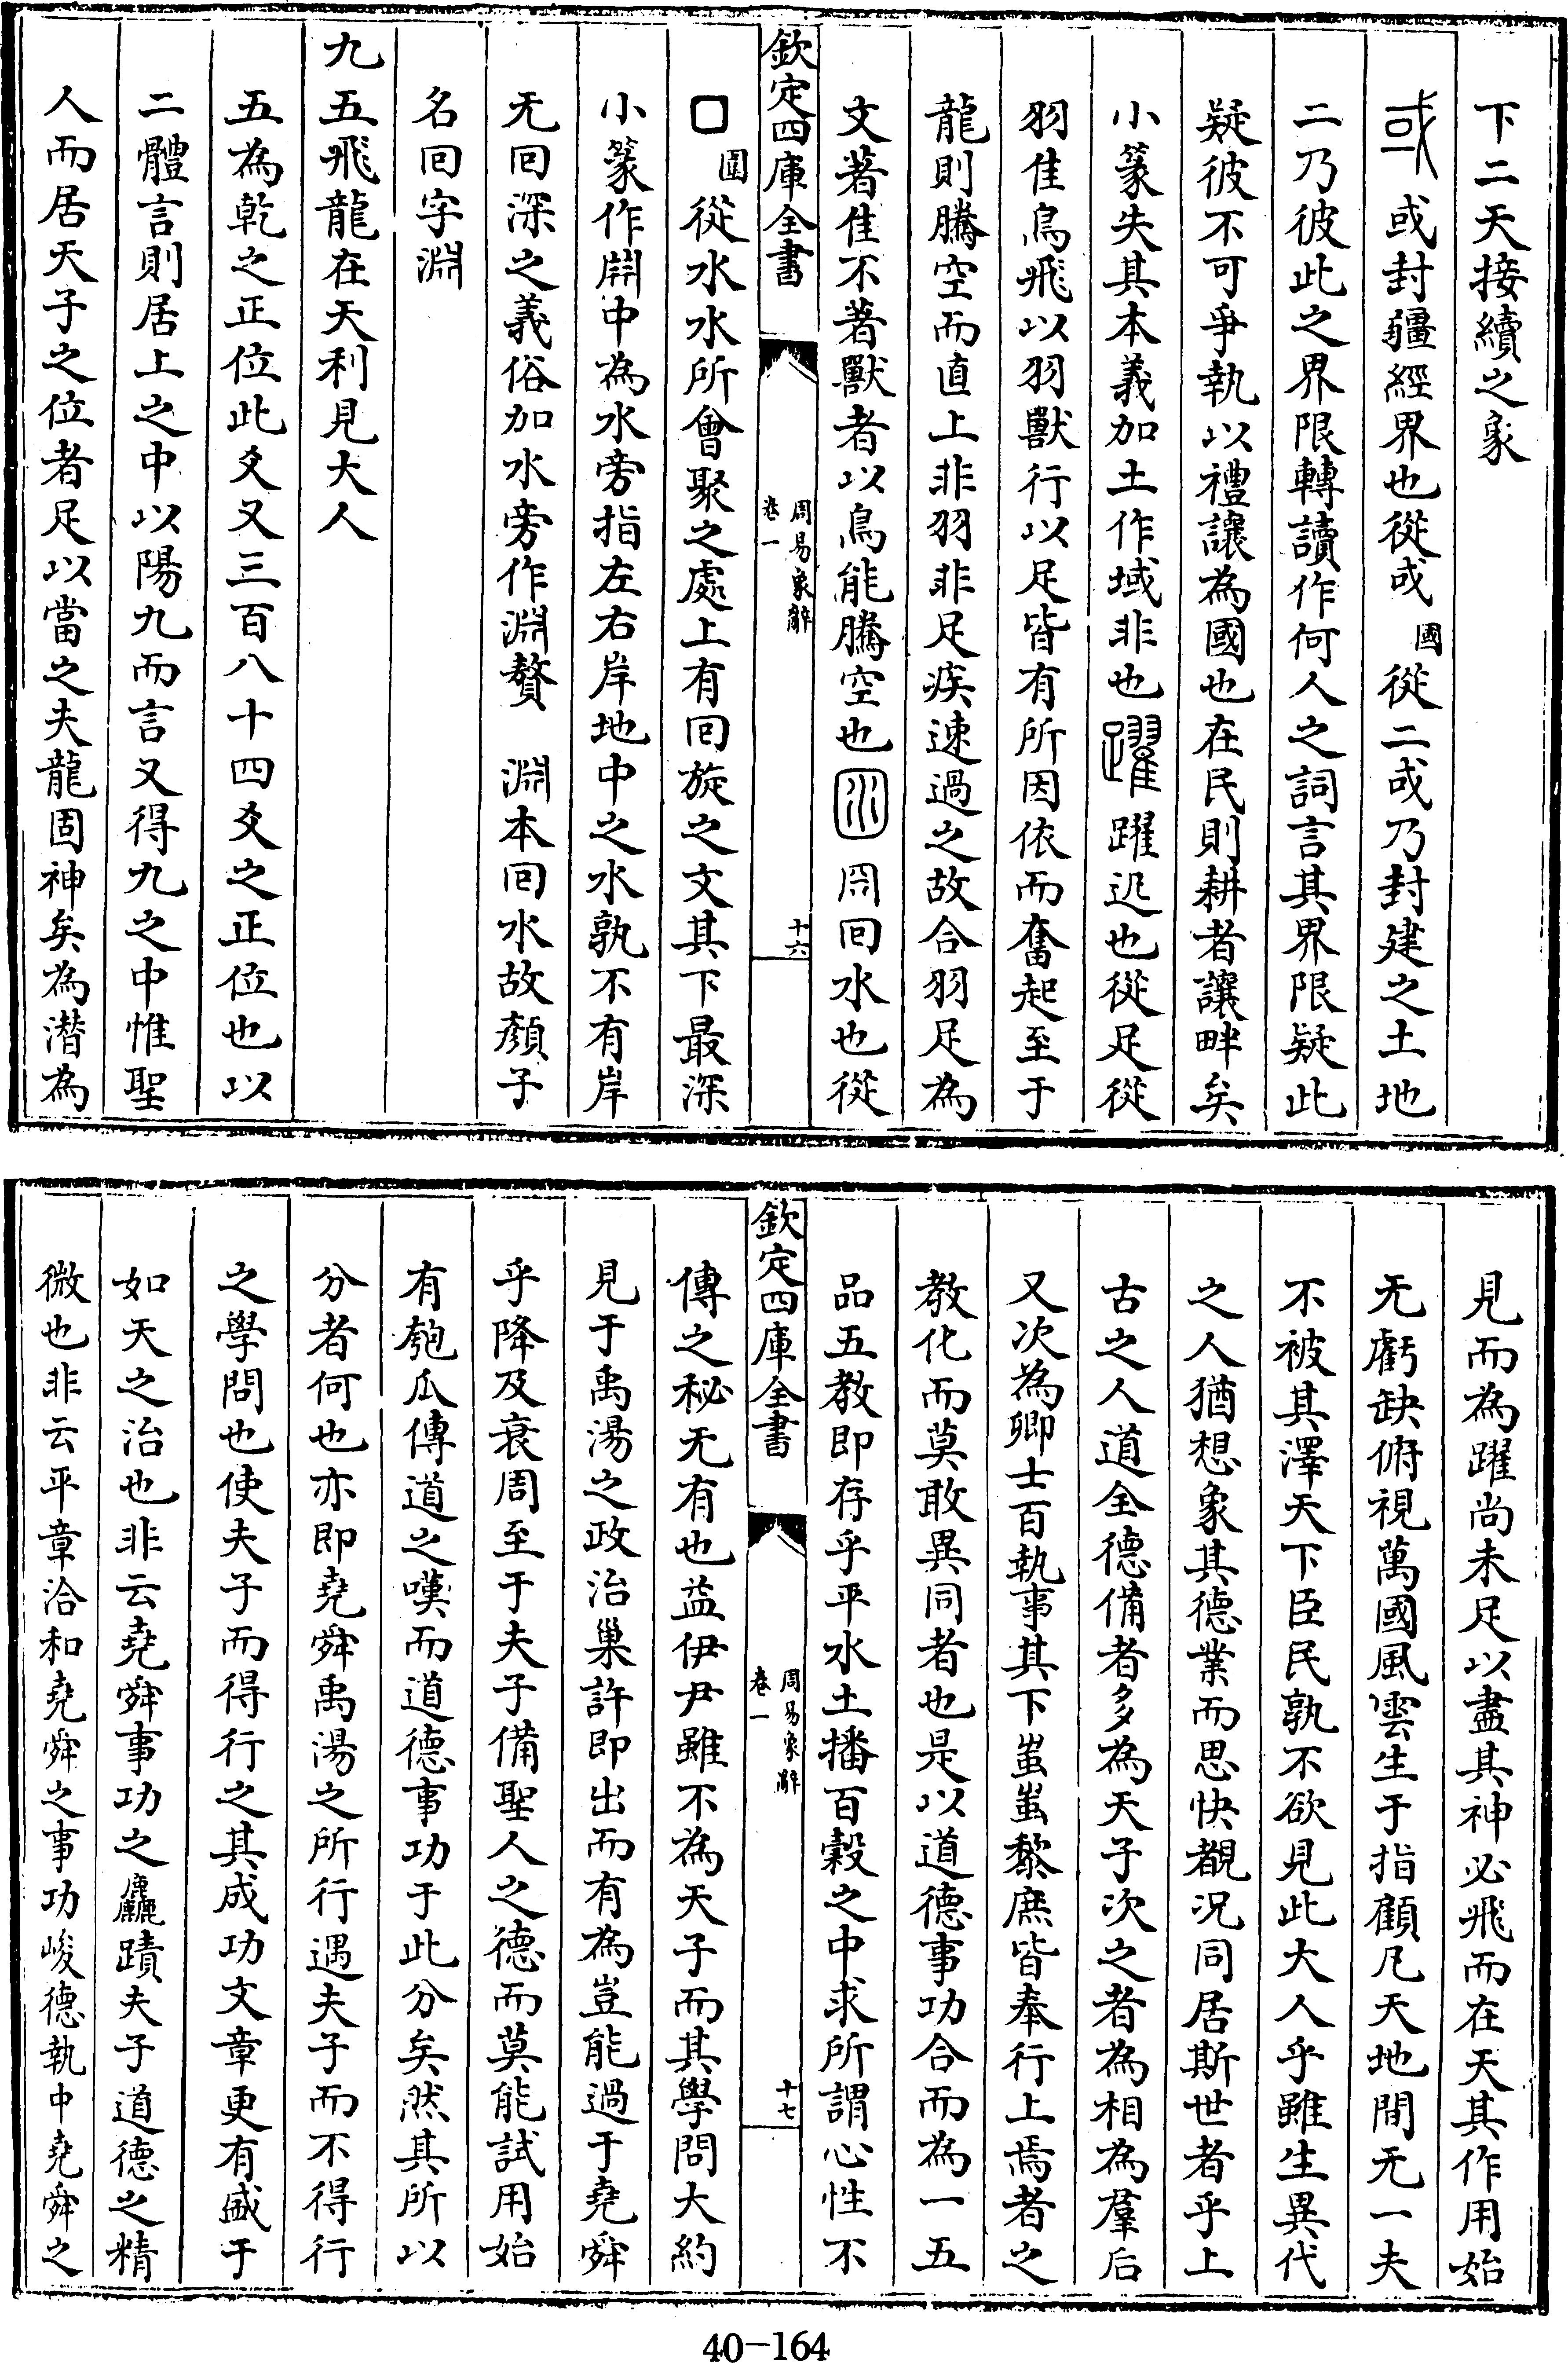 下二天接續之象
或或封疆經界也從或國從二或乃封建之土地
二乃彼此之界限轉讀作何人之詞言其界限疑此
疑彼不可爭執以禮讓為國也在民則耕者讓畔矣
小篆失其本義加土作域非也躍躍迅也從足從
羽隹鳥飛以羽獸行以足皆有所因依而奮起至于
龍則騰空而直上非羽非足疾速過之故合羽足為
文著隹不著獸者以鳥能騰空也回水也從
欽定四庫全書
周易象辭
卷一
十六
囗圍從水水所會聚之處上有回旋之文其下最深
小篆作開中為水旁指左右岸地中之水孰不有岸
无回深之義俗加水旁作淵贅　淵本回水故顏子
名回字淵
九五飛龍在天利見大人
五為乾之正位此爻又三百八十四爻之正位也以
二體言則居上之中以陽九而言又得九之中惟聖
人而居天子之位者足以當之夫龍固神矣為潛為
見而為躍尚未足以盡其神必飛而在天其作用始
无虧缺俯視萬國風雲生于指顧凡天地間无一夫
不被其澤天下臣民孰不欲見此大人乎雖生異代
之人猶想象其德業而思快覩況同居斯世者乎上
古之人道全德備者多為天子次之者為相為羣后
又次為卿士百執事其下蚩蚩黎庶皆奉行上焉者之
教化而莫敢異同者也是以道德事功合而為一五
品五教即存乎平水土播百穀之中求所謂心性不
欽定四庫全書
周易象辭
卷一
十七
傳之秘无有也益伊尹雖不為天子而其學問大約
見于禹湯之政治巢許即出而有為豈能過于堯舜
乎降及衰周至于夫子備聖人之德而莫能試用始
有匏瓜傳道之嘆而道德事功于此分矣然其所以
分者何也亦即堯舜禹湯之所行遇夫子而不得行
之學問也使夫子而得行之其成功文章更有盛于
如天之治也非云堯舜事功之麤蹟夫子道德之精
微也非云平章洽和堯舜之事功峻德執中堯舜之
40-164